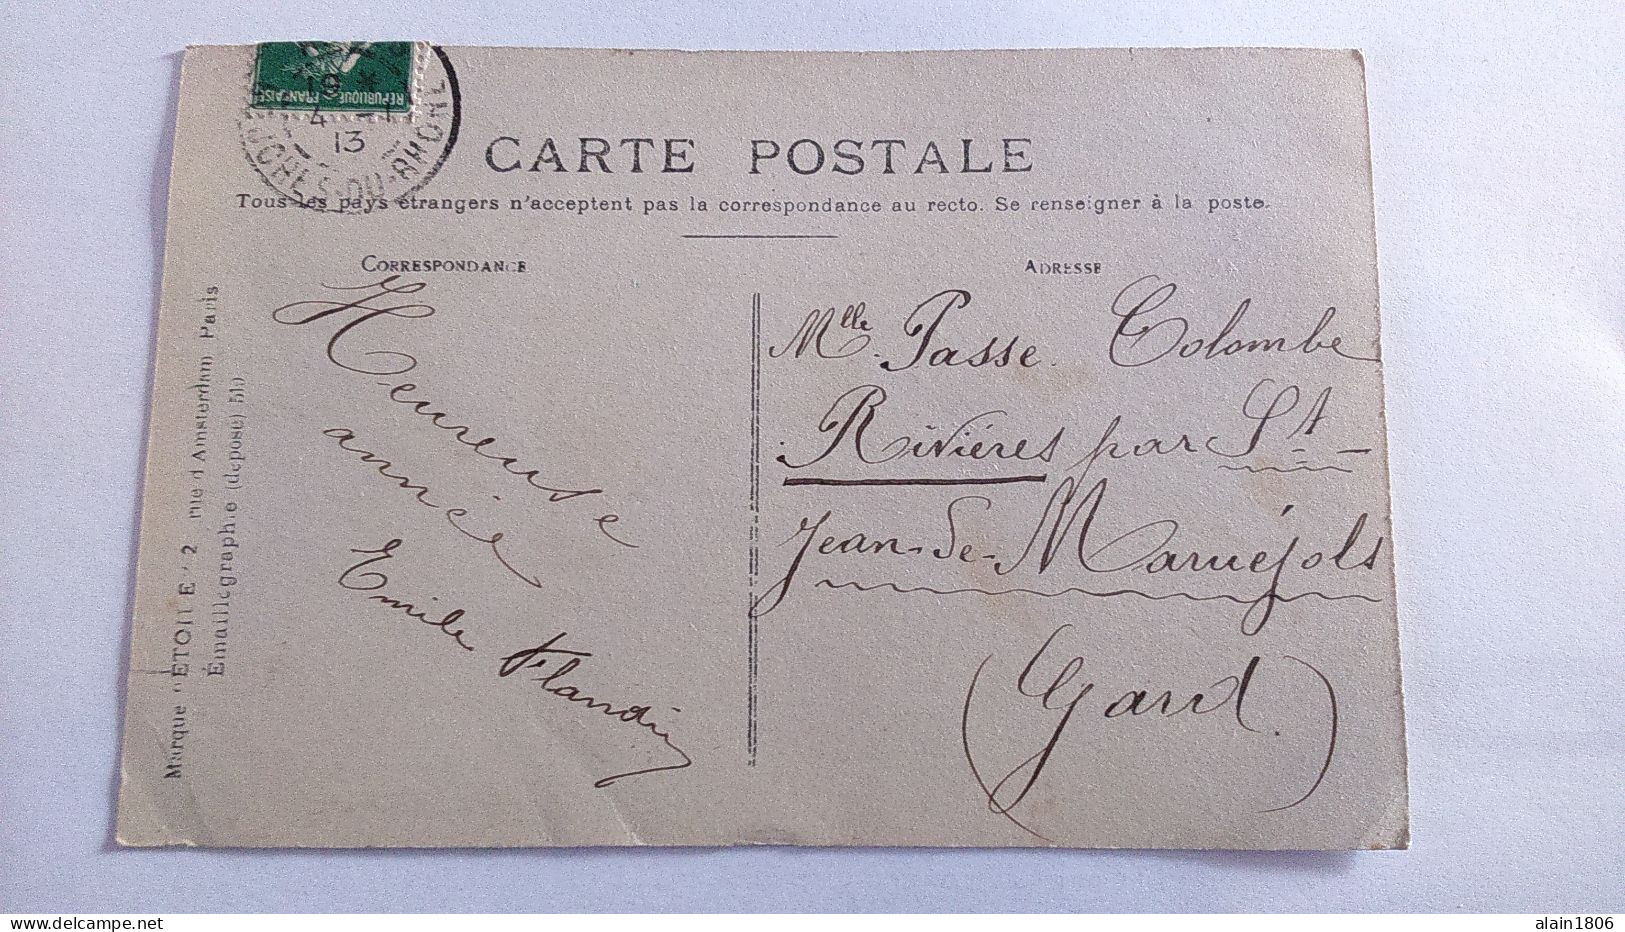 RÉPUBLIQUE FRANÇAISE
19 *
4 - 1
13
UCHES-DU-RHONE
CARTE POSTALE
Tous les pays étrangers n'acceptent pas la correspondance au recto. Se renseigner à la poste.
CORRESPONDANCE
Heureuse
année
Emile Flandin
ADRESSE
Mlle. Passe Colombe
Rivières par St
Jean-de-Maruéjols
(Gard.)
Marque "ETOILE" 2 rue d'Amsterdam Paris
Émaillographie (déposé)
alain1806